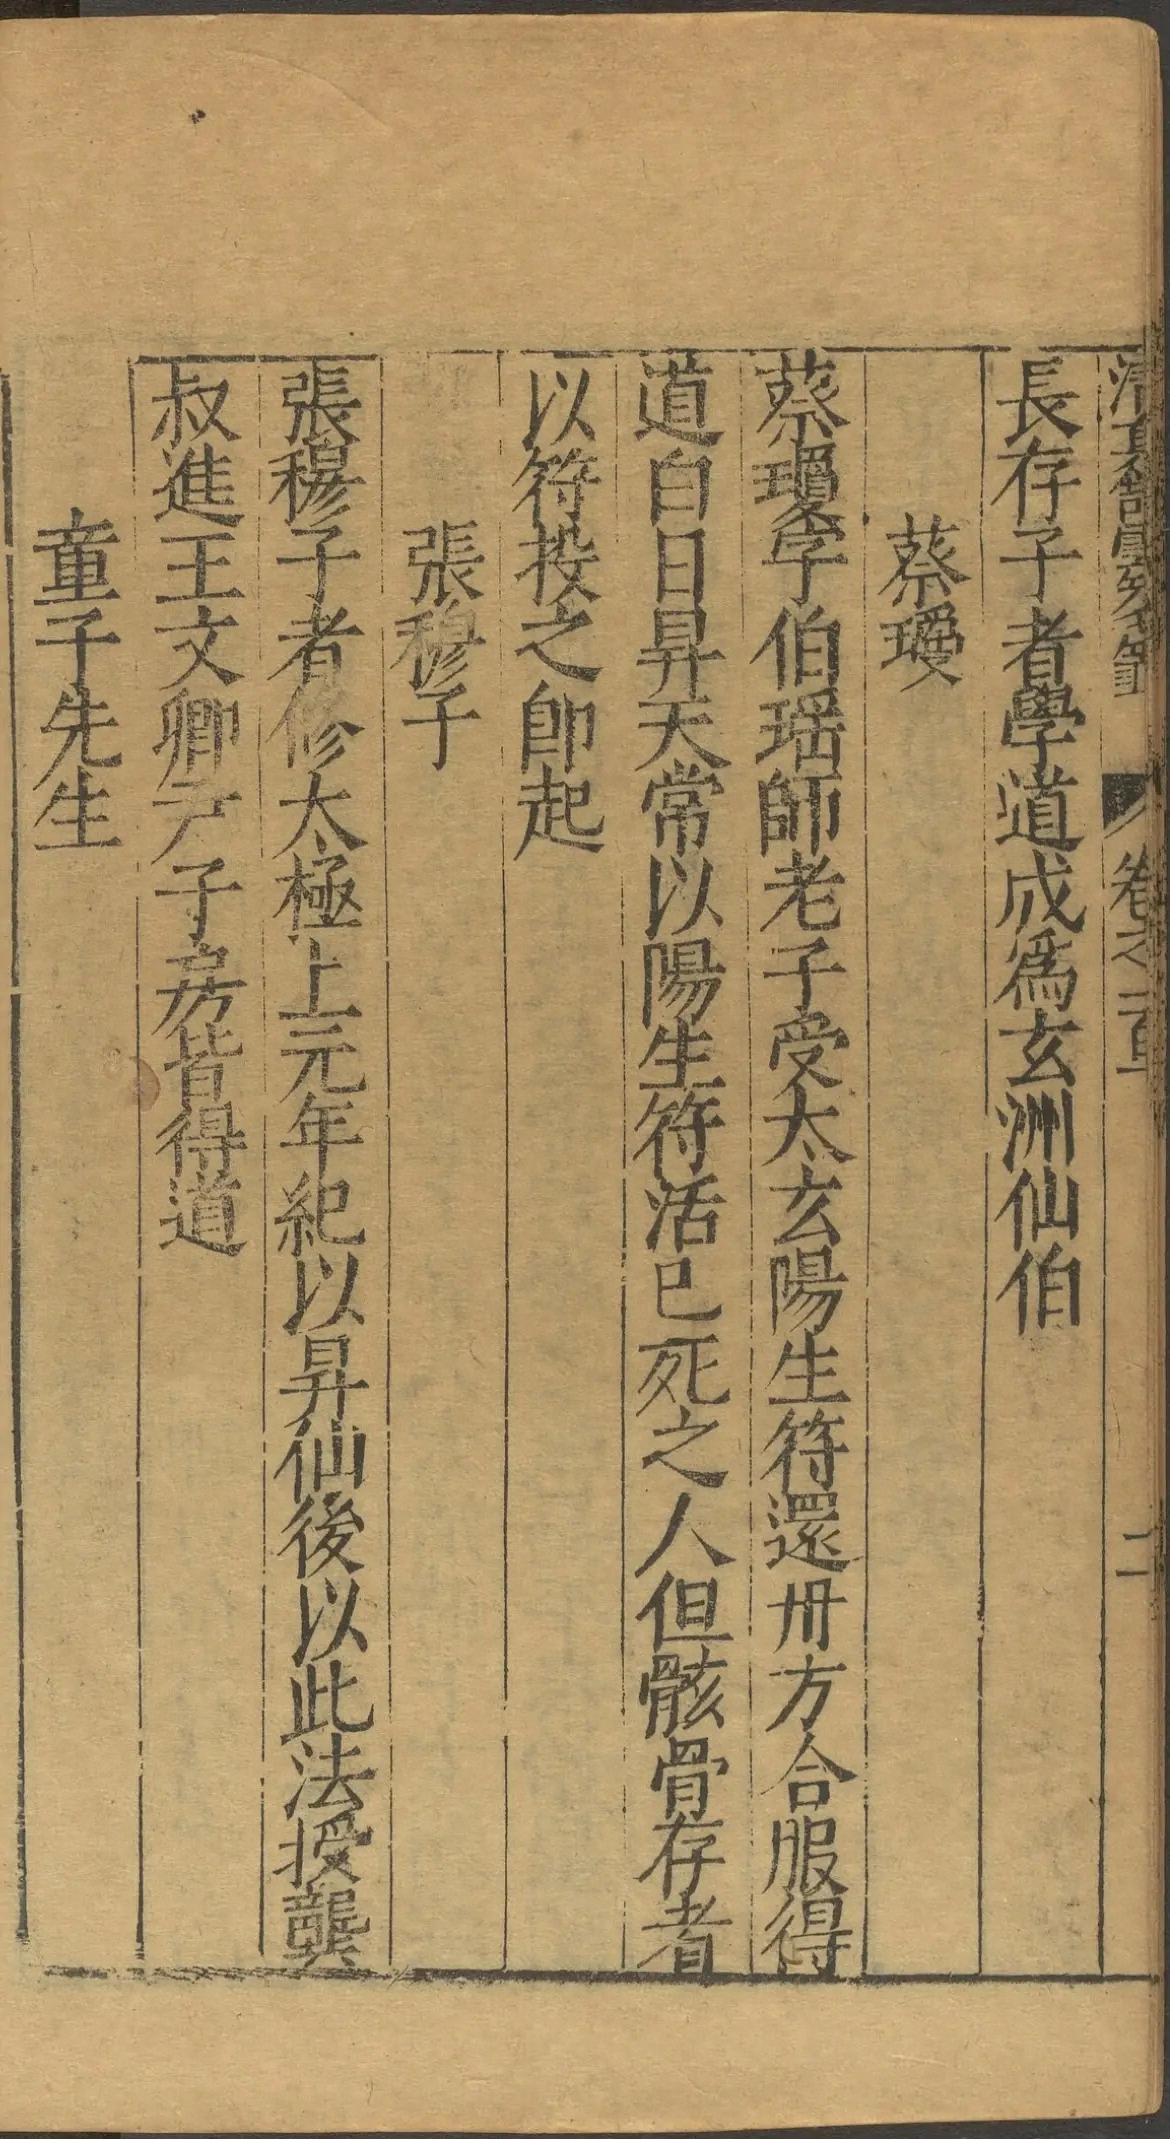 卷之一 二
長存子者學道成爲玄洲仙伯
蔡瓊
蔡瓊字伯瑶師老子受太玄陽生符還丹方合服得
道白日昇天常以陽生符活已死之人但骸骨存者
以符投之卽起
張穆子
張穆子者修太極上元年紀以昇仙後以此法授龔
叔進王文卿尹子房皆得道
童子先生